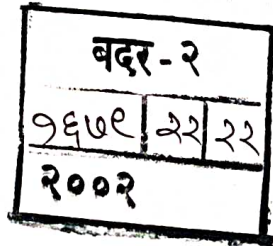 बदर - २
१६७९ | २२ | २२
२००२